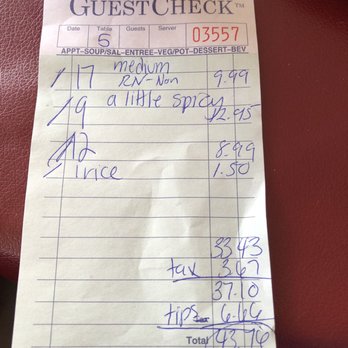 GUESTCHECK™
Date Table Guests Server
5 03557
APPT-SOUP/SAL-ENTREE-VEG/POT-DESSERT-BEV
17 medium
RN-Non 9.99
9 a little spicy 12.95
12 8.99
1 rice 1.50
33.43
tax 3.67
37.10
tips 6.66
Total 43.76